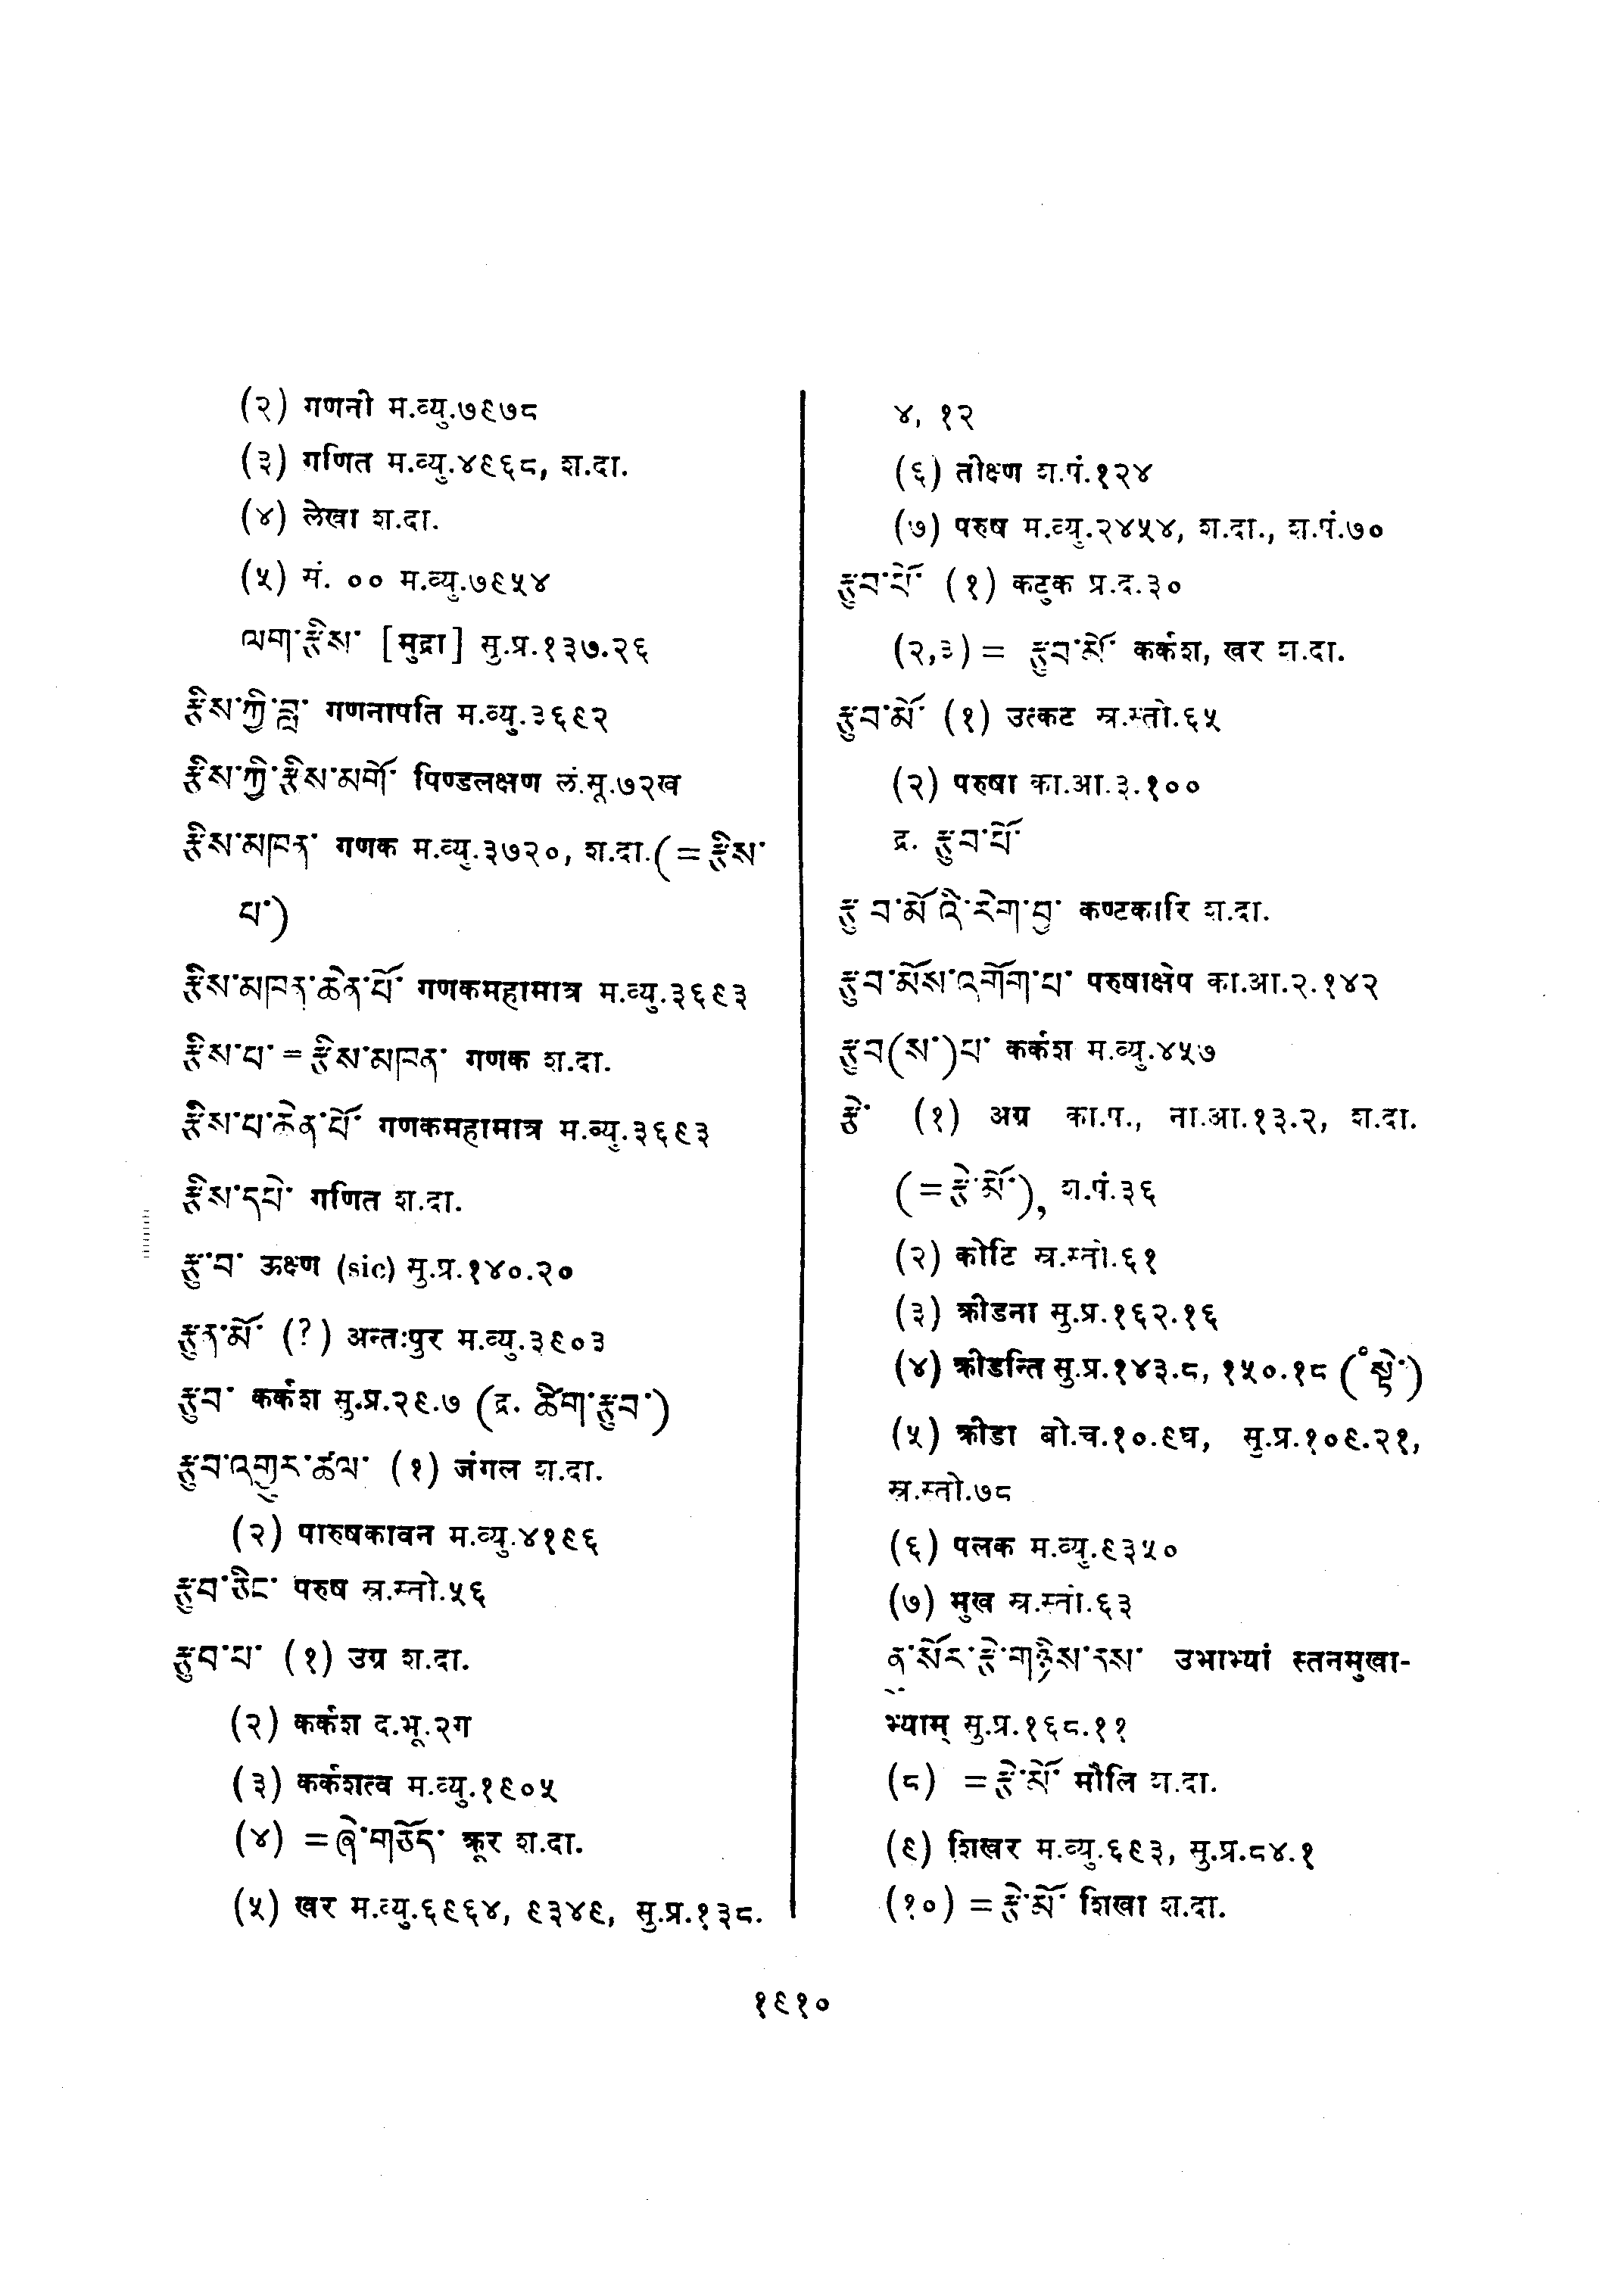 (२) गणनी म.व्यु.७९७८
(३) गणित म.व्यु.४९६८, श.दा.
(४) लेखा श.दा.
(५) मं. ०० म.व्यु.७९५४
ལག་རྩིས་ [मुद्रा] सु.प्र.१३७.२६
རྩིས་ཀྱི་བླ་ गणनापति म.व्यु.३६९२
རྩིས་ཀྱི་རྩིས་མགོ་ पिण्डलक्षण लं.मू.७२ख
རྩིས་མཁན་ गणक म.व्यु.३७२०, श.दा.(=རྩིས་
པ་)
རྩིས་མཁན་ཆེན་པོ་ गणकमहामात्र म.व्यु.३६९३
རྩིས་པ་ = རྩིས་མཁན་ गणक श.दा.
རྩིས་པ་ཆེན་པོ་ गणकमहामात्र म.व्यु.३६९३
རྩིས་དཔེ་ गणित श.दा.
རྩུ་བ་ ऊक्ष्ण (sic) सु.प्र.१४०.२०
རྩུན་མོ་ (?) अन्तःपुर म.व्यु.३९०३
རྩུབ་ कर्कश सु.प्र.२९.७ (द्र. ཚིག་རྩུབ་)
རྩུབ་འགྱུར་ཚལ་ (१) जंगल श.दा.
(२) पारुषकावन म.व्यु.४१९६
རྩུབ་ཅིང་ परुष स्र.स्तो.५६
རྩུབ་པ་ (१) उग्र श.दा.
(२) कर्कश द.भू.२ग
(३) कर्कशत्व म.व्यु.१९०५
(४) =ཞེ་གཅོད་ क्रूर श.दा.
(५) खर म.व्यु.६९६४, ९३४९, सु.प्र.१३८.
४, १२
(६) तीक्ष्ण श.पं.१२४
(७) परुष म.व्यु.२४५४, श.दा., श.पं.७०
རྩུབ་པོ་ (१) कटुक प्र.द.३०
(२,३)= རྩུབ་མོ་ कर्कश, खर श.दा.
རྩུབ་མོ་ (१) उत्कट स्र.स्तो.६५
(२) परुषा का.आ.३.१००
द्र. རྩུབ་པོ་
རྩུབ་མོའི་རེག་བྱ་ कण्टकारि श.दा.
རྩུབ་མོས་འགོག་པ་ परुषाक्षेप का.आ.२.१४२
རྩུབ(ས་)པ་ कर्कश म.व्यु.४५७
རྩེ་ (१) अग्र का.प., ना.आ.१३.२, श.दा.
(=རྩེ་མོ་), श.पं.३६
(२) कोटि स्र.स्तो.६१
(३) क्रीडना सु.प्र.१६२.१६
(४) क्रीडन्ति सु.प्र.१४३.८, १५०.१८ (°སྟེ་)
(५) क्रीडा बो.च.१०.९घ, सु.प्र.१०९.२१,
स्र.स्तो.७८
(६) पलक म.व्यु.९३५०
(७) मुख स्र.स्तो.६३
ནུ་སོར་རྩེ་གཉིས་ནས་ उभाभ्यां स्तनमुखा-
भ्याम् सु.प्र.१६८.११
(८) =རྩེ་མོ་ मौलि श.दा.
(९) शिखर म.व्यु.६९३, सु.प्र.८४.१
(१०) =རྩེ་མོ་ शिखा श.दा.
१९१०